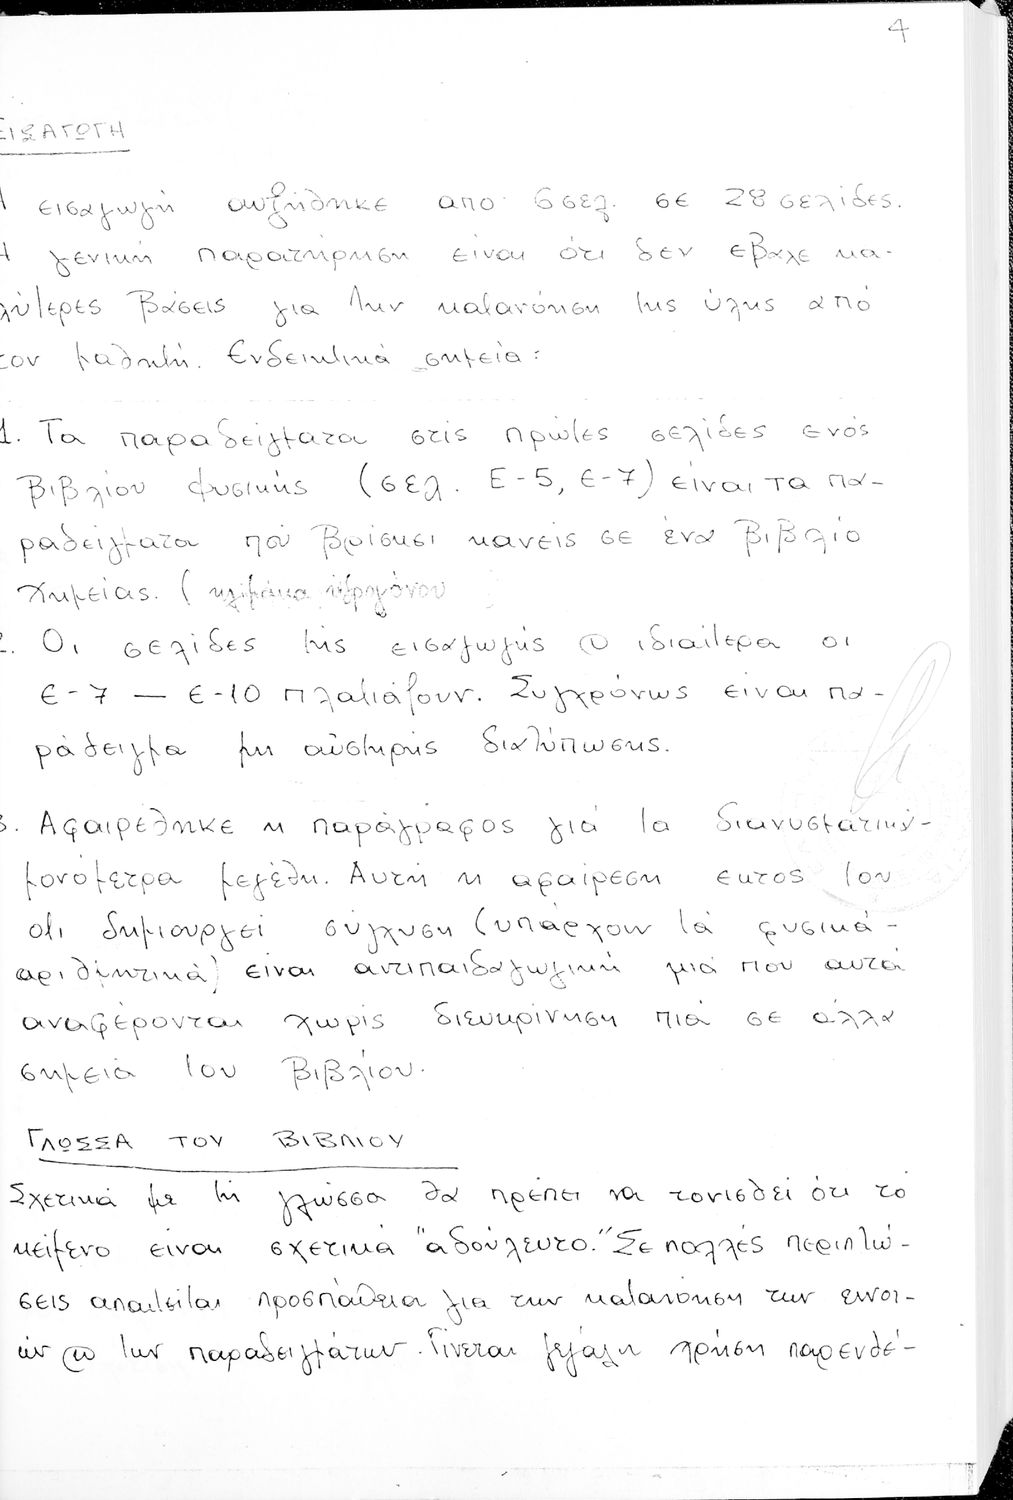 4
ΕΙΣΑΓΩΓΗ
Η εισαγωγή αυξήθηκε από 6 σελ. σε 28 σελίδες.
Η γενική παρατήρηση είναι ότι δεν έβαλε κα-
λύτερες βάσεις για την κατανόηση της ύλης από
τον μαθητή. Ενδεικτικά σημεία:
1. Τα παραδείγματα στις πρώτες σελίδες ενός
βιβλίου φυσικής (σελ. Ε-5, Ε-7) είναι τα πα-
ραδείγματα που βρίσκει κανείς σε ένα βιβλίο
Χημείας. (κλίμακα υδρογόνου
2. Οι σελίδες της εισαγωγής ϖ ιδιαίτερα οι
Ε-7 — Ε-10 πλατιάζουν. Συγχρόνως είναι πα-
ράδειγμα μη αύστηρής διατύπωσης.
3. Αφαιρέθηκε η παράγραφος γιά τα διανυσματικά-
μονόμετρα μεγέθη. Αυτή η αφαίρεση εκτος του
οτι δημιουργεί σύγχυση (υπάρχουν τά φυσικά-
αριθμητικά) είναι αντιπαιδαγωγική μιά που αυτά
αναφέρονται χωρίς διευκρίνηση πιά σε άλλα
σημεία του βιβλίου.
ΓΛΩΣΣΑ ΤΟΥ ΒΙΒΛΙΟΥ
Σχετικά με τη γλώσσα θα πρέπει να τονισθεί ότι το
κείμενο είναι σχετικά "αδούλευτο." Σε πολλές περιπτώ-
σεις απαιτείται προσπάθεια για την κατανόηση των εννοι-
ών ϖ των παραδειγμάτων. Γίνεται μεγάλη χρήση παρενθέ-